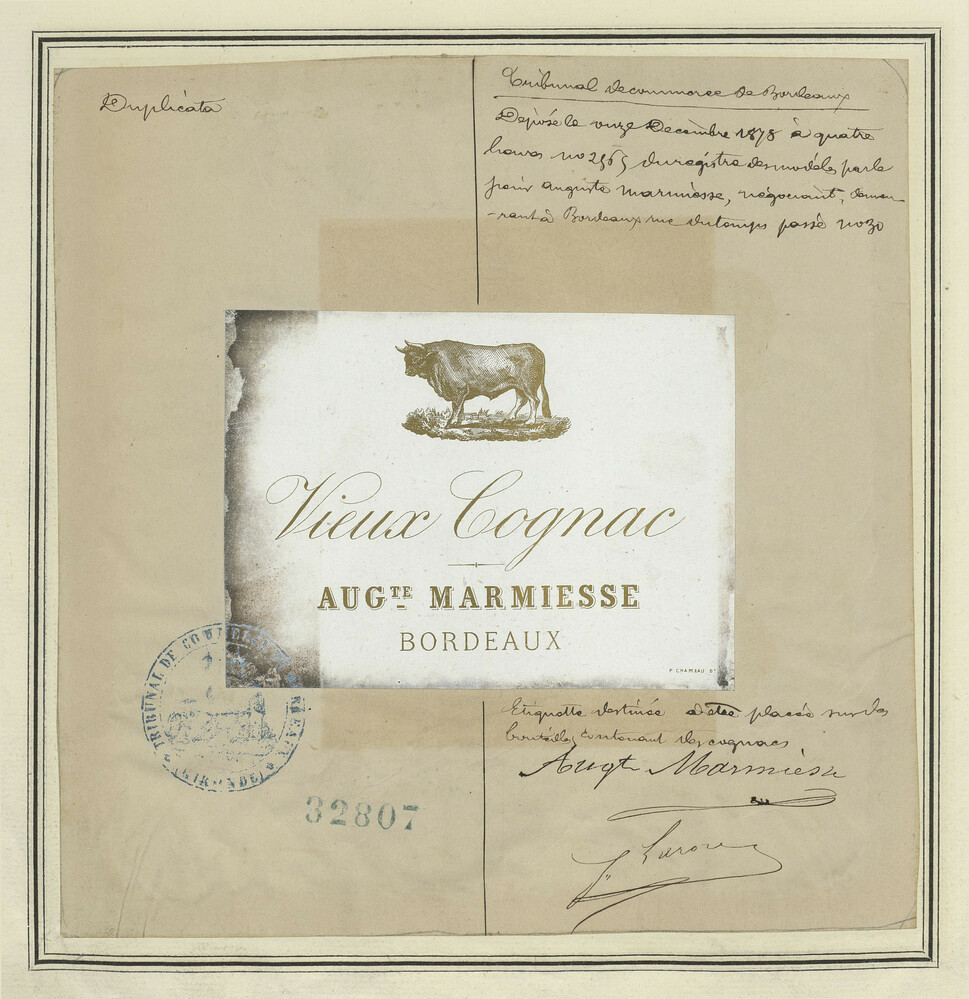 Duplicata
Tribunal de commerce de Bordeaux
Déposé le onze Décembre 1878 à quatre
heures no 2565 du registre des modèles par le
sieur auguste marmiesse, négociant, demeu-
-rant à Bordeaux rue du temps passé no 30
Vieux Cognac
AUGTE MARMIESSE
BORDEAUX
P. CHAMBAU Bx
TRIBUNAL DE COMMERCE BORDEAUX
(GIRONDE)
Etiquette destinée a être placée sur des
bouteilles contenant des cognacs
Augte Marmiesse
32807